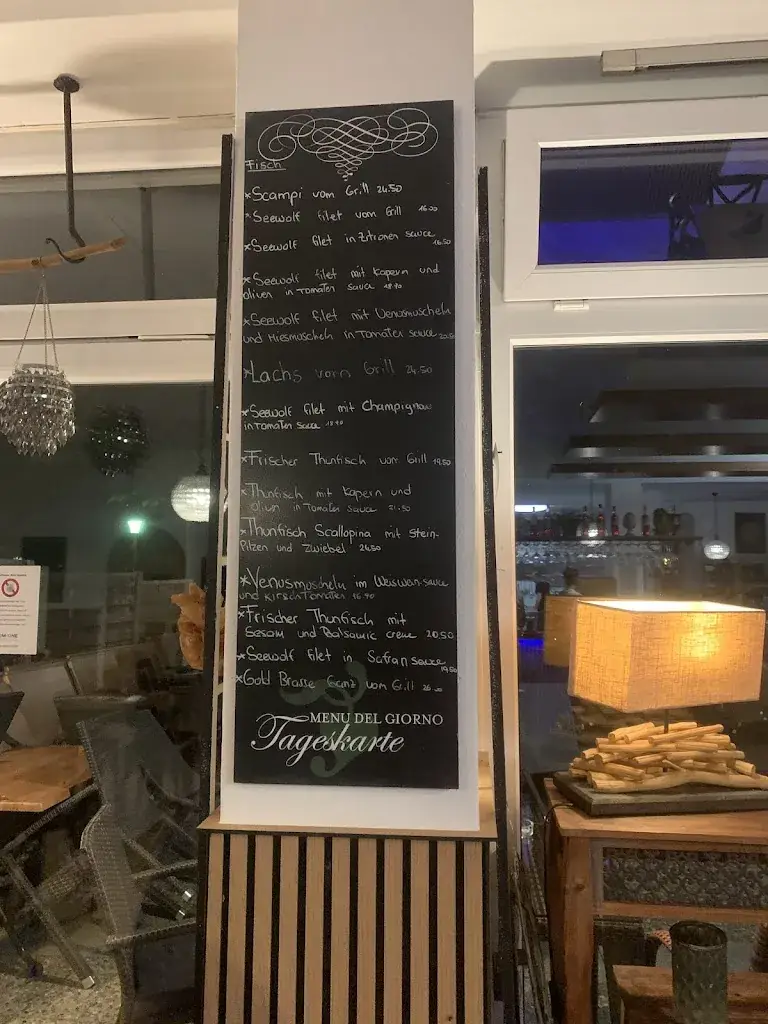 Fisch
*Scampi vom Grill 24.50
*Seewolf filet vom Grill 16.00
*Seewolf filet in Zitronen sauce 16.50
*Seewolf filet mit Kapern und
oliven in Tomaten sauce 18.90
*Seewolf filet mit Venusmuscheln
und Miesmuscheln in Tomaten sauce 20.50
*Lachs vom Grill 24.50
*Seewolf filet mit Champignon
in Tomaten sauce 18.90
*Frischer Thunfisch vom Grill 19.50
*Thunfisch mit Kapern und
oliven in Tomaten sauce 21.50
*Thunfisch Scallopina mit Stein-
Pilzen und Zwiebel 24.50
*Venusmoscheln im Weiswein-sauce
und KirschTomaten 16.90
*Frischer Thunfisch mit
Sesam und Balsamic creme 20.50
*Seewolf filet in Safran sauce 19.50
*Gold Brasse Ganz vom Grill
MENU DEL GIORNO
Tageskarte